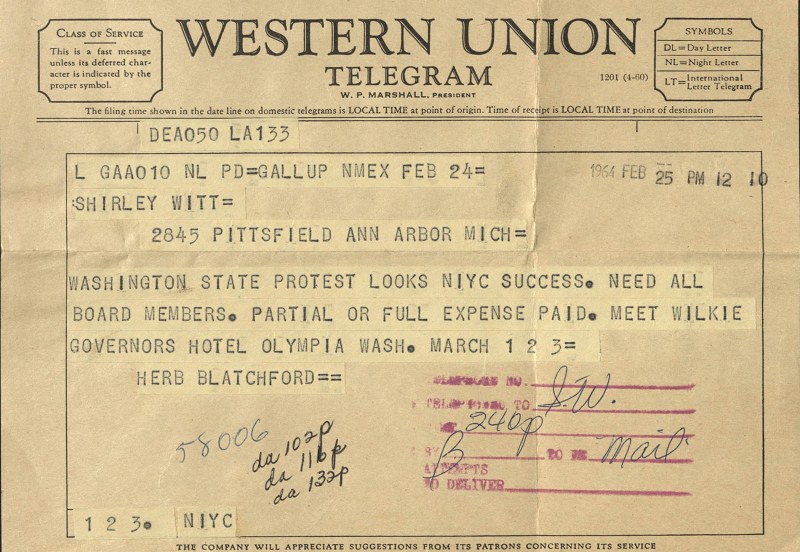 CLASS OF SERVICE
This is a fast message
unless its deferred char-
acter is indicated by the
proper symbol.
WESTERN UNION
TELEGRAM
W. P. MARSHALL, PRESIDENT
1201 (4-60)
SYMBOLS
DL=Day Letter
NL=Night Letter
LT=International
Letter Telegram
The filing time shown in the date line on domestic telegrams is LOCAL TIME at point of origin. Time of receipt is LOCAL TIME at point of destination
DEA050 LA133
L GAA010 NL PD=GALLUP NMEX FEB 24=
1964 FEB 25 PM 12 10
:SHIRLEY WITT=
2845 PITTSFIELD ANN ARBOR MICH=
WASHINGTON STATE PROTEST LOOKS NIYC SUCCESS. NEED ALL
BOARD MEMBERS. PARTIAL OR FULL EXPENSE PAID. MEET WILKIE
GOVERNORS HOTEL OLYMPIA WASH. MARCH 1 2 3=
HERB BLATCHFORD==
TELEPHONE NO.
TELEPHONED TO S.W.
240p
BY B TO BE Mail
ATTEMPTS
TO DELIVER
58006
da 102p
da 116p
da 132p
1 2 3. NIYC
THE COMPANY WILL APPRECIATE SUGGESTIONS FROM ITS PATRONS CONCERNING ITS SERVICE